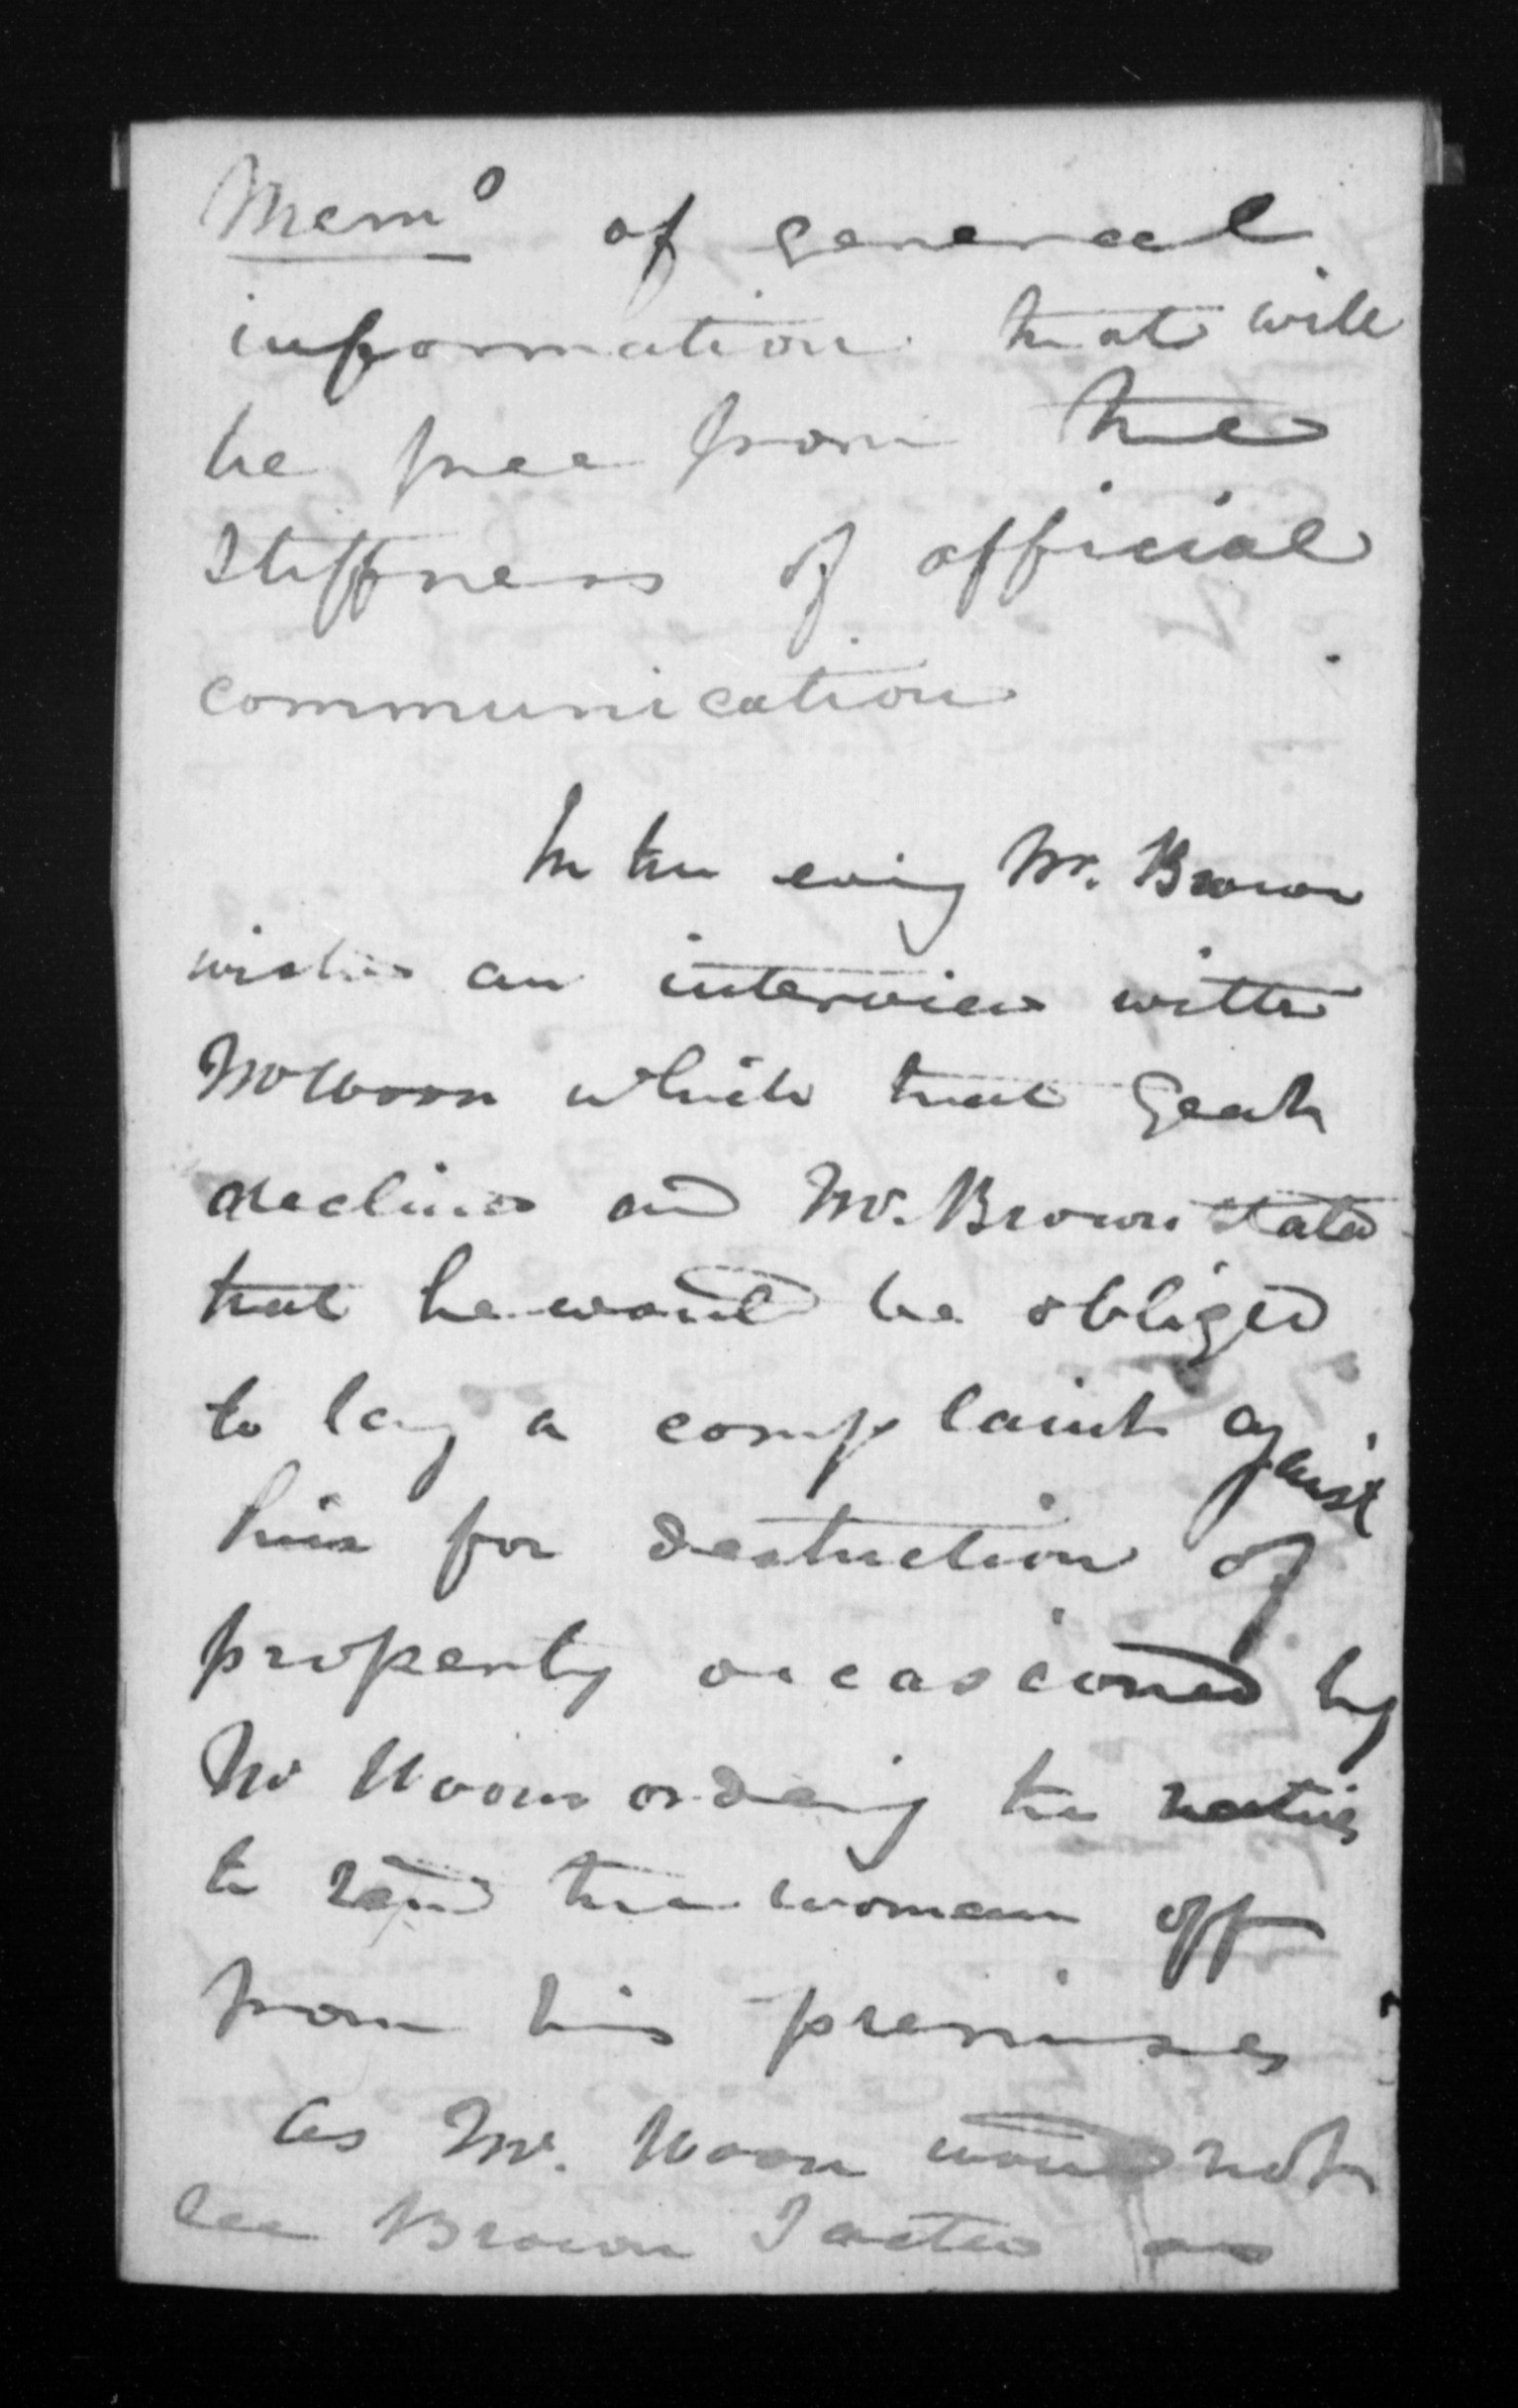 Memo of general
information that will
be free from the
stiffness of official
communication
In the eving Mr. Brown
wishes an interview with
Mr Woon which that Gent
declines and Mr. Brown stated
that he would be obliged
to lay a complaint against
him for destruction of
property occasioned by
Mr Woon ordering the natives
to send the woman off
from his premises
as Mr. Woon would not
see Brown I acted as